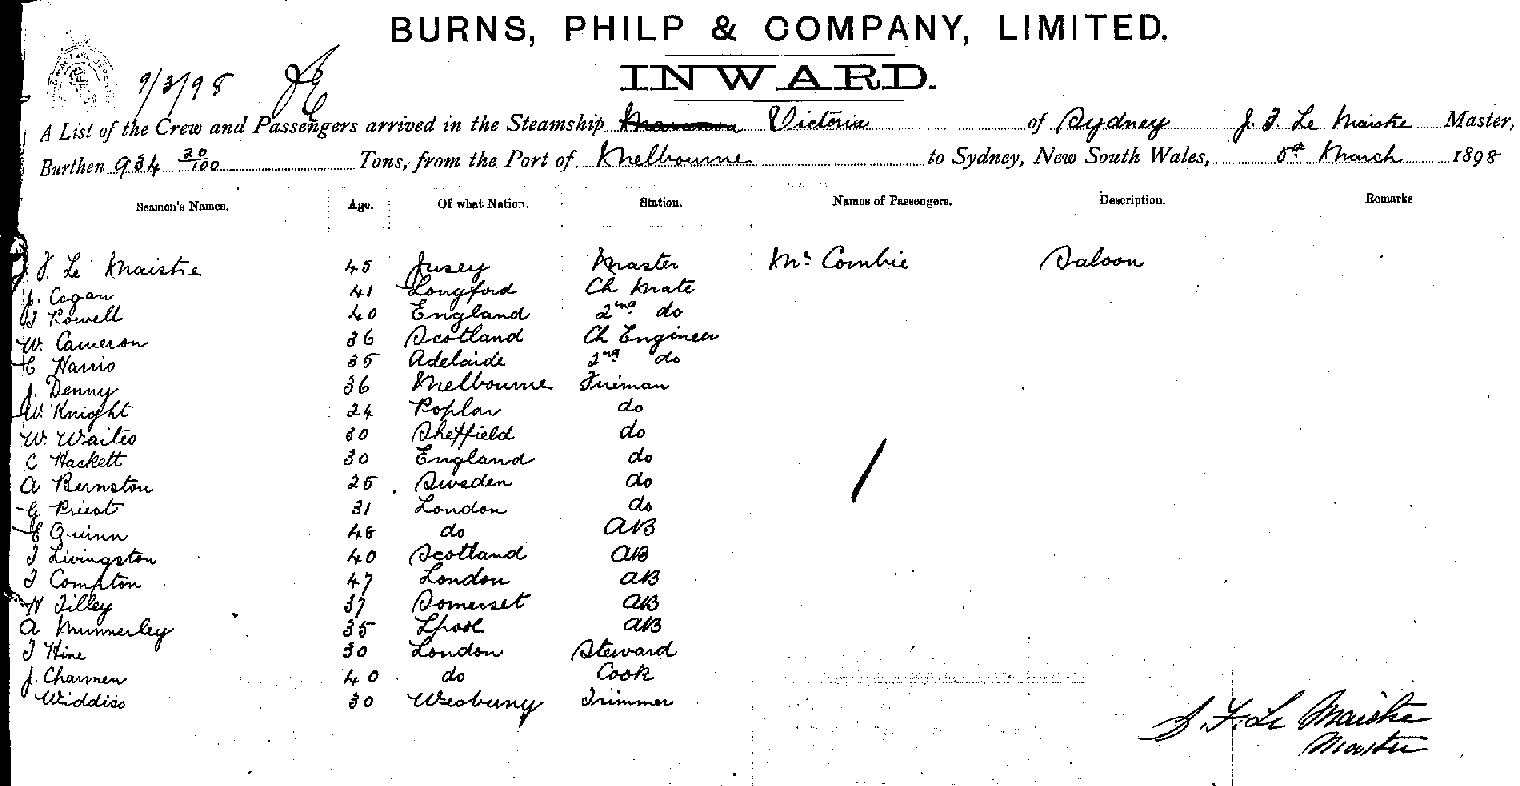 BURNS, PHILP & COMPANY, LIMITED.
INWARD.
9/3/98
A List of the Crew and Passengers arrived in the Steamship Victoria of Sydney J. F. Le Maistre Master,
Burthen 934 30/100 Tons, from the Port of Melbourne to Sydney, New South Wales, 8th March 1898
Seamen's Names. Age. Of what Nation. Station. Names of Passengers. Description. Remarks
J. F. Le Maistre 45 Jersey Master Mr Combie Saloon
J. Cogan 41 Longford Ch Mate
F Powell 40 England 2nd do
W. Cameron 36 Scotland Ch Engineer
E Harris 35 Adelaide 2nd do
J. Denny 36 Melbourne Fireman
W. Knight 24 Poplar do
W. Waites 30 Sheffield do
C Hackett 30 England do
A Bernston 25 Sweden do
G Priest 31 London do
E Quinn 48 do AB
J Livingston 40 Scotland AB
J Compton 47 London AB
H Tilley 37 Somerset AB
A Munnerley 35 Lpool AB
J Hine 30 London Steward
J. Charmen 40 do Cook
Widdiss 30 Trimmer
J. F. Le Maistre
Master